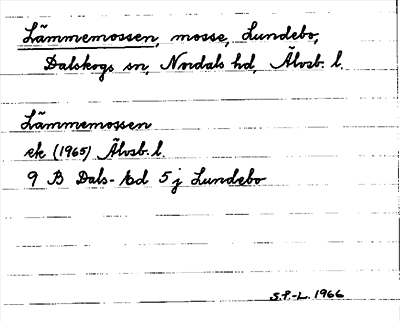 Lämmemossen, mosse, Lundebo,
Dalskogs sn, Nordals hd, Älvsb. l.
Lämmemossen
ek (1965) Älvsb. l.
9 B Dals-Ed 5 j Lundebo
S.P.-L. 1966